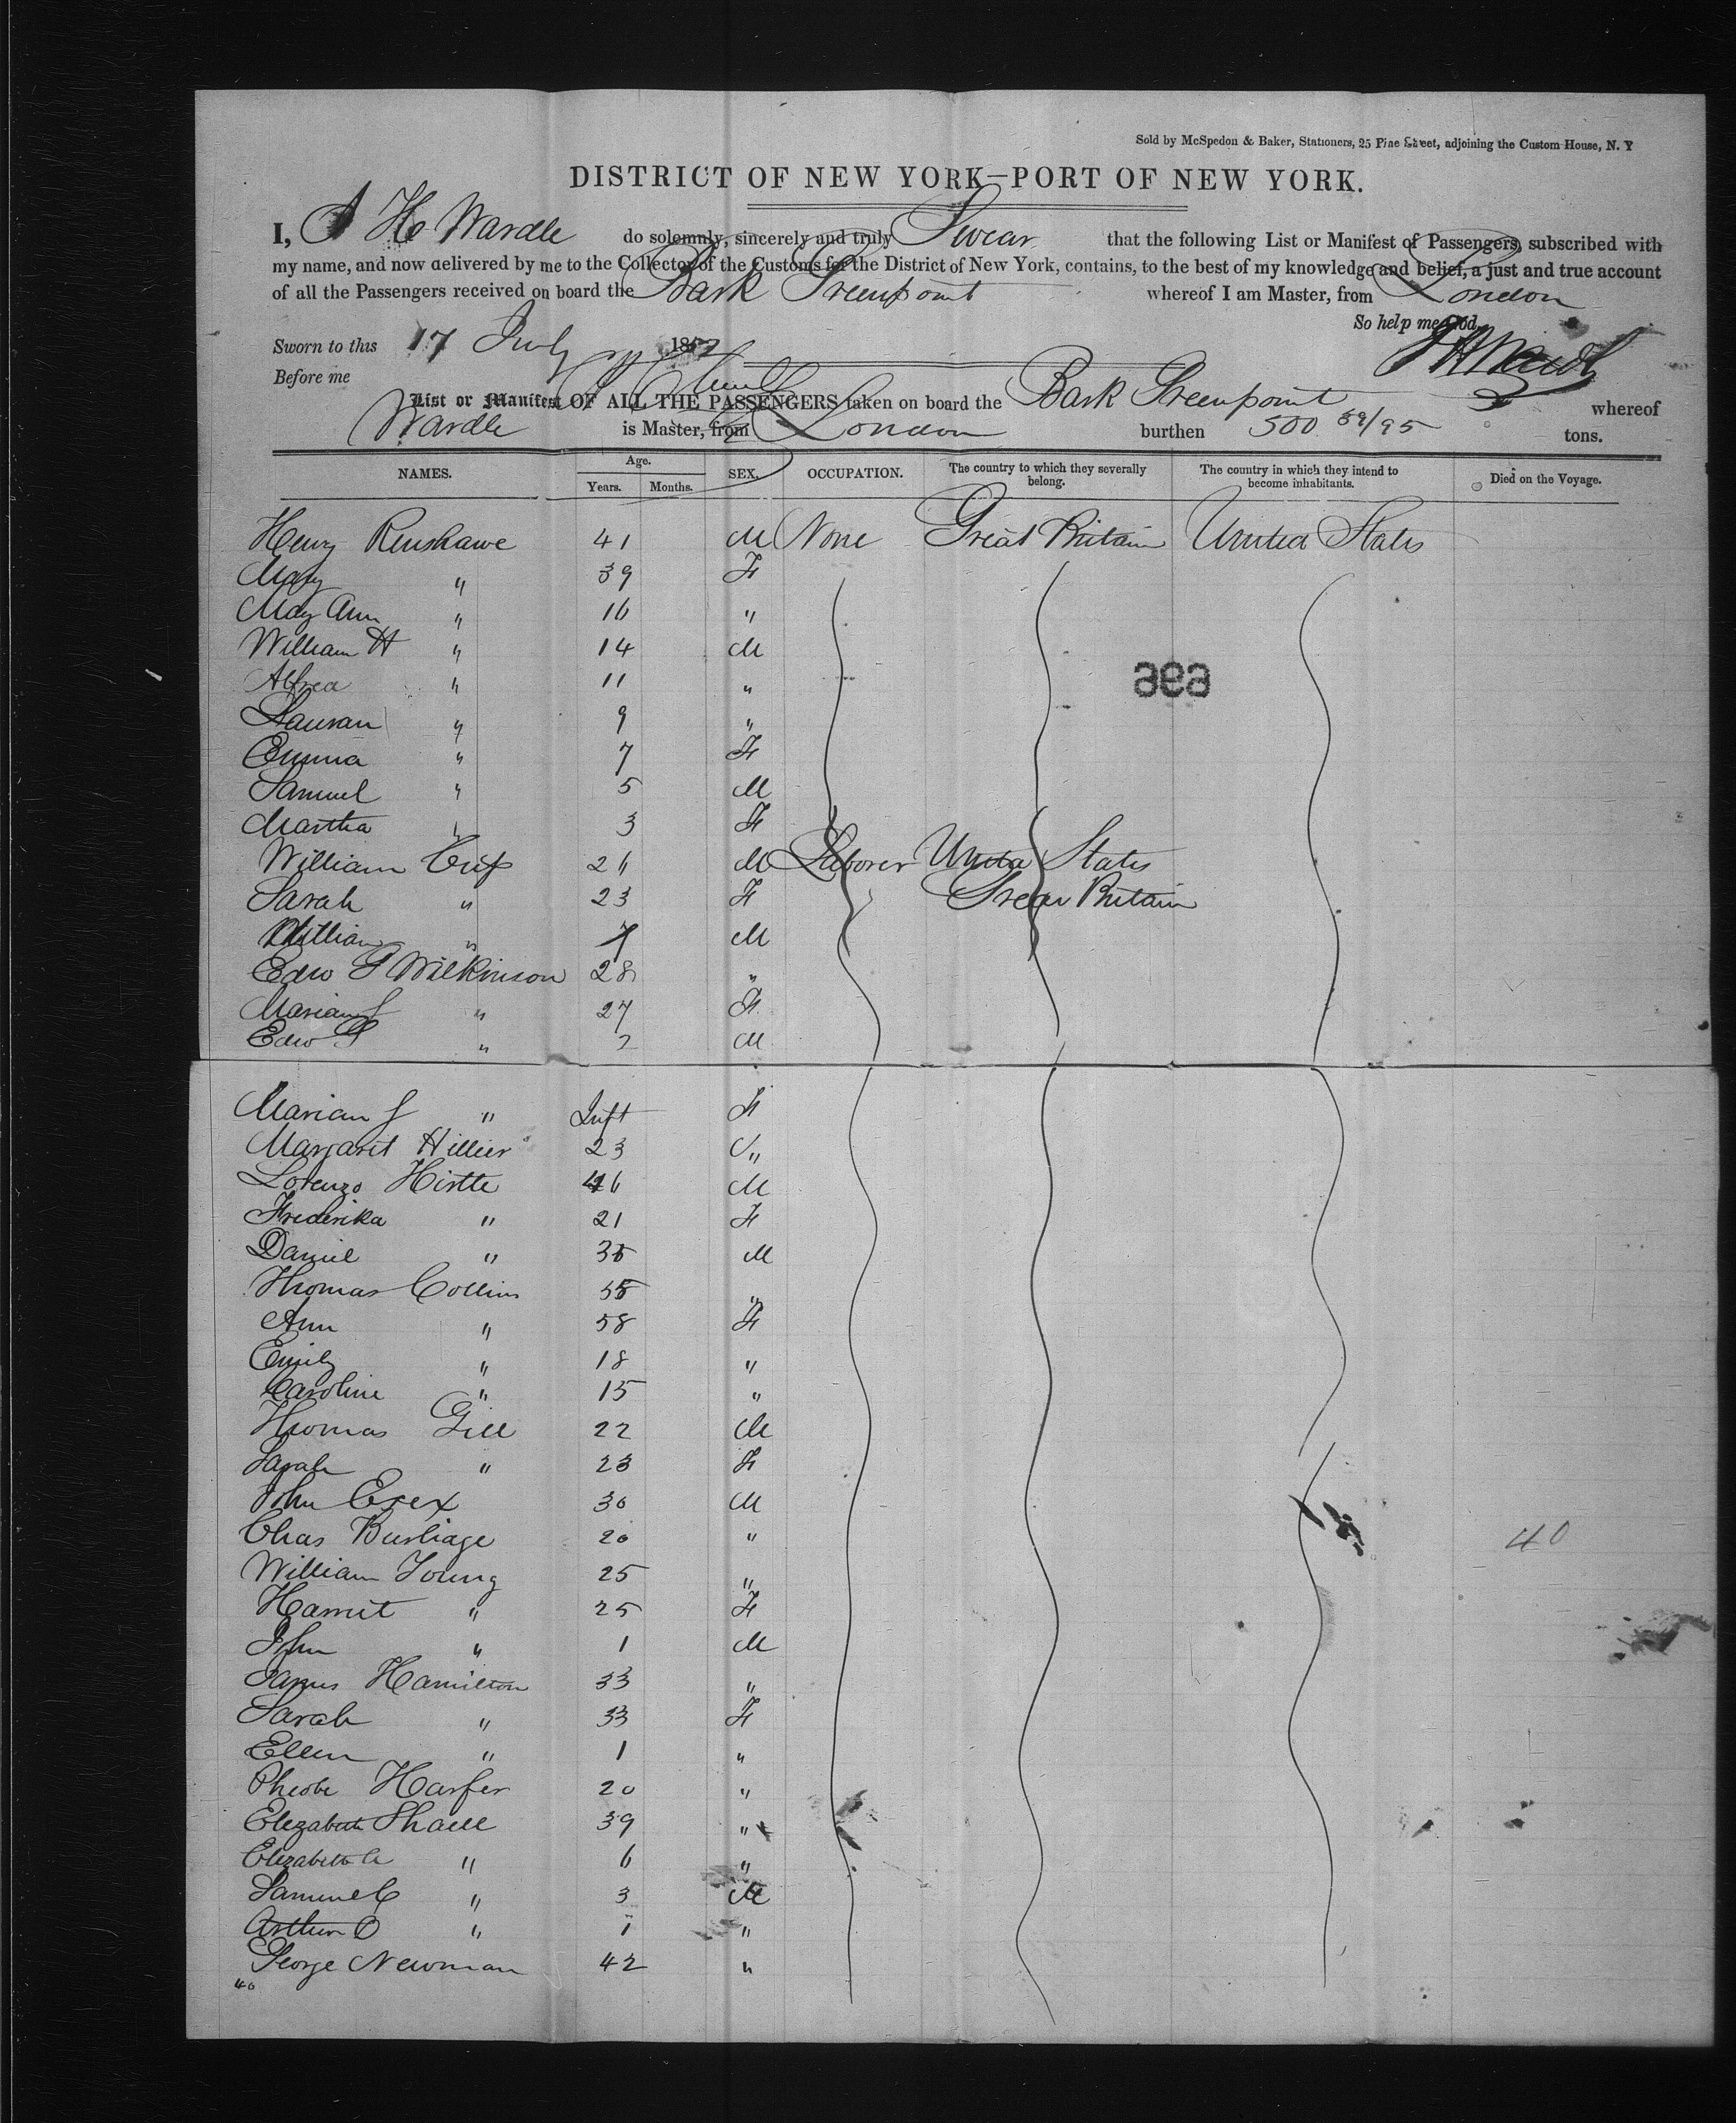 Sold by McSpedon & Baker, Stationers, 25 Pine Street, adjoining the Custom House, N. Y
DISTRICT OF NEW YORK—PORT OF NEW YORK.
I, A H Wardle do solemnly, sincerely and truly Swear that the following List or Manifest of Passengers, subscribed with
my name, and now delivered by me to the Collector of the Customs for the District of New York, contains, to the best of my knowledge and belief, a just and true account
of all the Passengers received on board the Bark Greenpoint whereof I am Master, from London
So help me God,
Sworn to this 17 July 1852
Before me
List or Manifest OF ALL THE PASSENGERS taken on board the Bark Greenpoint whereof
Wardle is Master, from London burthen 500 89/95 tons.
NAMES. Age. Years. Months. SEX. OCCUPATION. The country to which they severally belong. The country in which they intend to become inhabitants. Died on the Voyage.
Henry Renshawe 41 M None Great Britain United States
Mary " 39 F
May Ann " 16 "
William H " 14 M
Alfred " 11 "
" 9 "
Emma " 7 F
Samuel " 5 M
Martha " 3 F
William 26 M Laborer United States
Sarah " 23 F Great Britain
William " M
Edw Wilkinson 28 "
Marian J " 27 F
Edw " 2 M
Marian J " Inft F
Margaret Hillier 23 "
Lorenzo Hirtte 46 M
Frederika " 21 F
Daniel " M
Thomas Collins "
Ann " 58 F
Emily " 18 "
Caroline " 15 "
Thomas Gill 22 M
Sarah " 23 F
John Esex 30 M
Chas Burliage 20 "
40
William Young 25 "
Harriet " 25 F
John " 1 M
James Hamilton 33 "
Sarah " 33 F
Ellen " 1 "
Pheobe Harper 20 "
Elizabeth 39 "
Elizabeth A " 6 "
Samuel C " 3 M
Arthur O " 1 "
George Newman 42 "
40